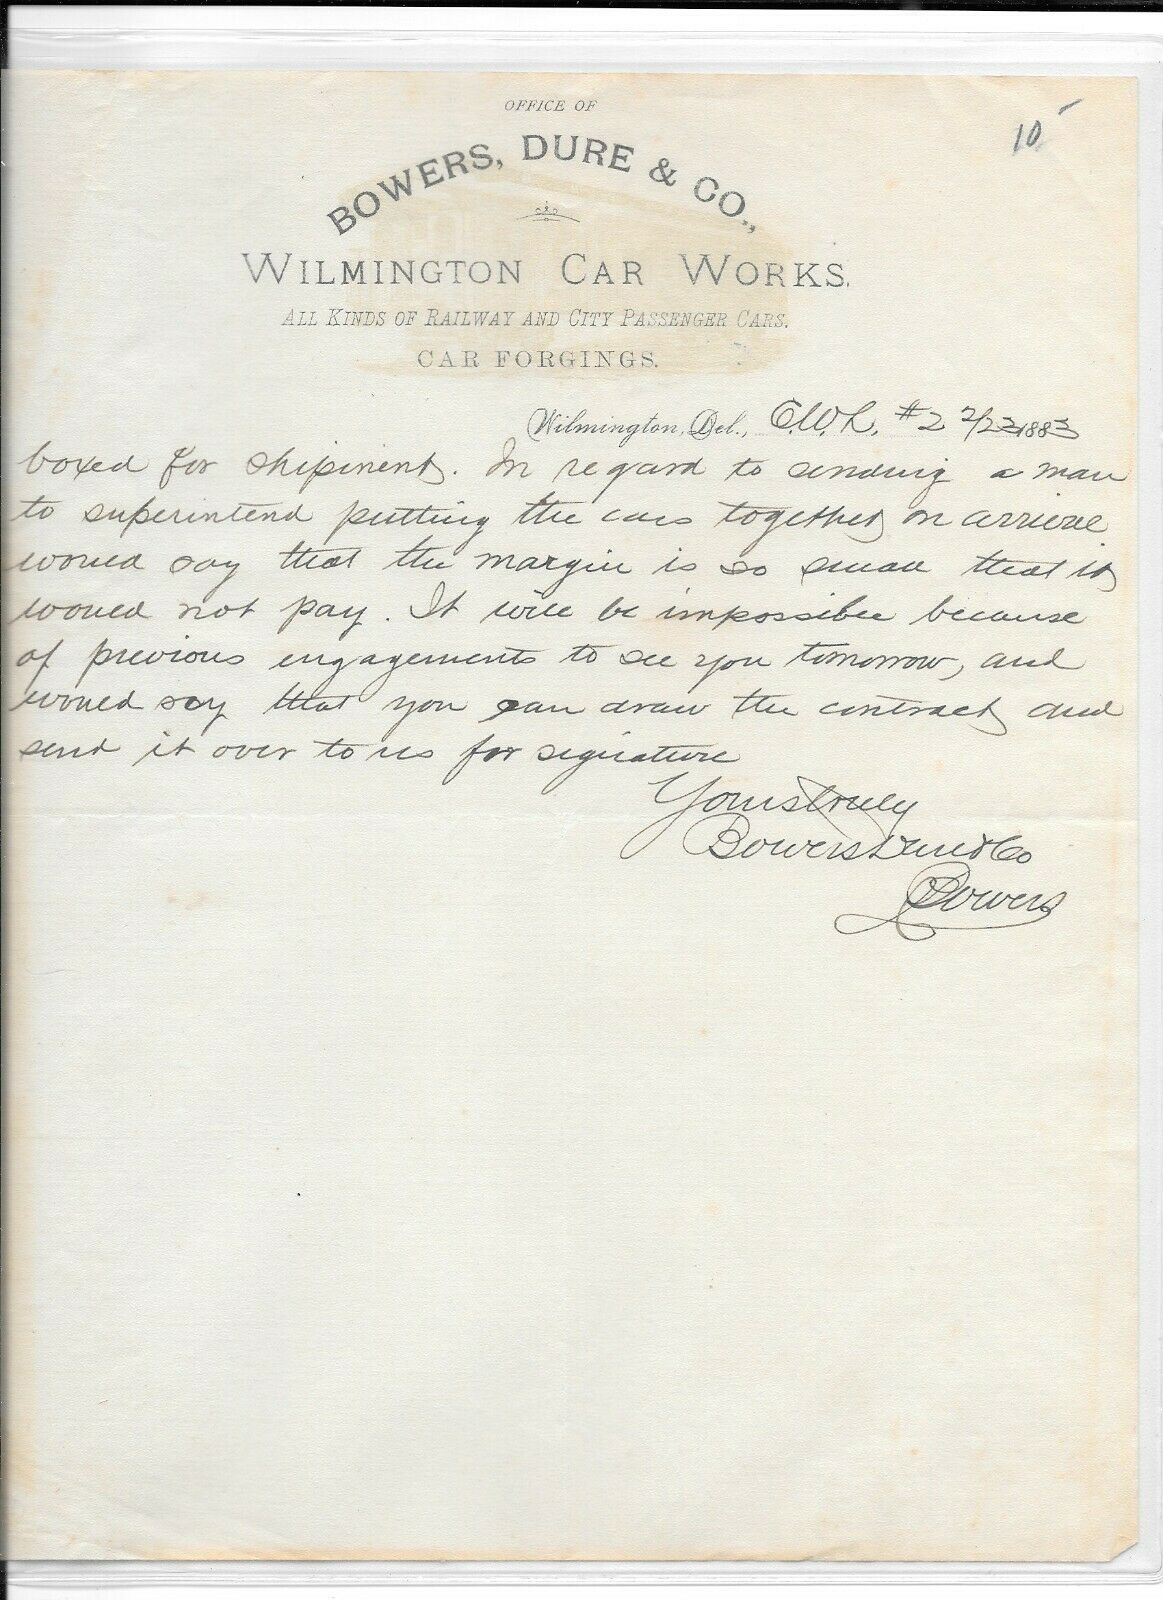 OFFICE OF
10
BOWERS, DURE & CO.,
WILMINGTON CAR WORKS.
ALL KINDS OF RAILWAY AND CITY PASSENGER CARS.
CAR FORGINGS.
Wilmington, Del., #2 2/23 1883
boxed for shipment. In regard to sending a man
to superintend putting the cars together on arrival
would say that the margin is so small that it
would not pay. It will be impossible because
of previous engagements to see you tomorrow, and
would say that you can draw the contract and
send it over to us for signature
Yours truly
Bowers Dure & Co
Bowers